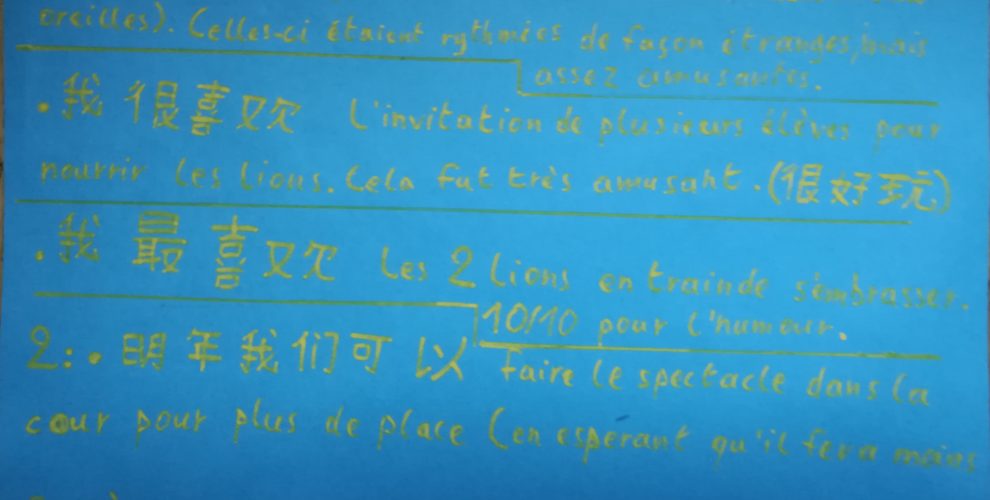 oreilles). Celles-ci étaient rythmées de façon étranges, mais
assez amusantes.
• 我 很 喜 欢 L'invitation de plusieurs élèves pour
nourrir les lions. Cela fut très amusant. (很好玩)
• 我 最 喜 欢 Les 2 lions en train de s'embrasser.
10/10 pour l'humour.
2: • 明 年 我 们 可 以 faire le spectacle dans la
cour pour plus de place (en esperant qu'il fera moins